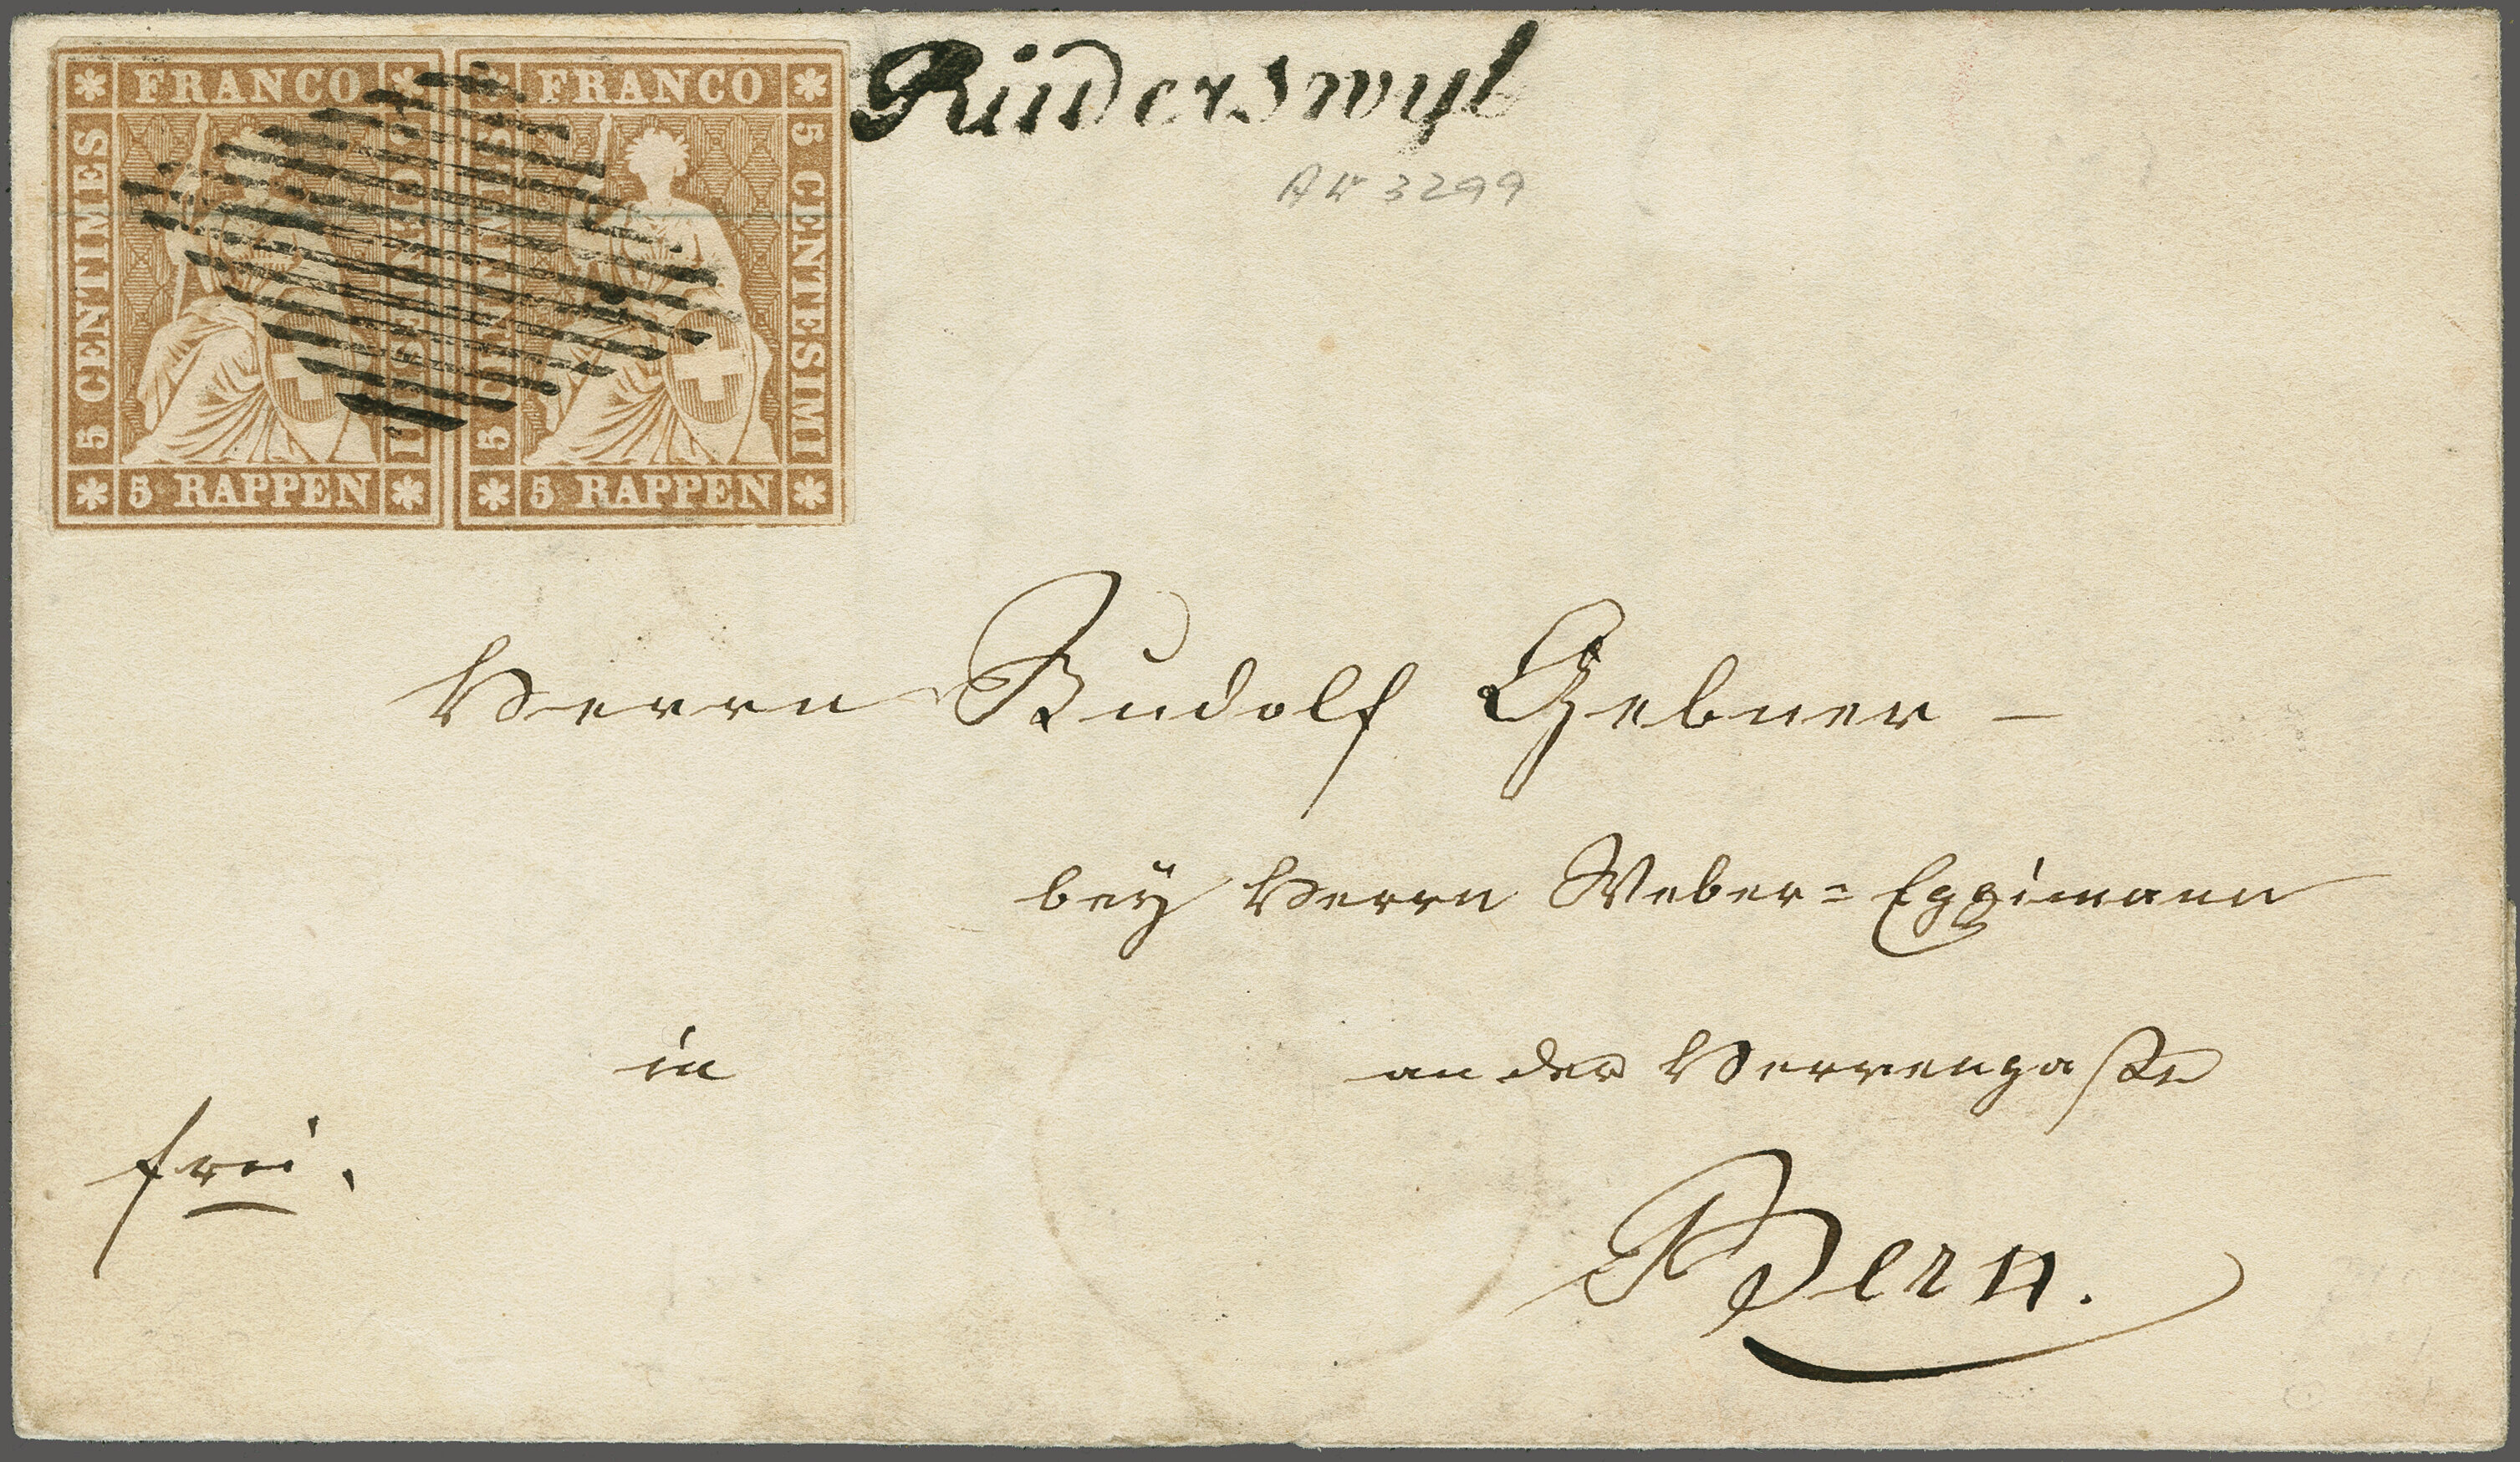 FRANCO FRANCO
5 CENTIMES
5 CENTESIMI
5 RAPPEN 5 RAPPEN
Rüderswyl
AW 3299
Herrn Rudolf Gebner –
bey Herrn Weber= Eggimann
in an der Herrengasse
frei.
Bern.